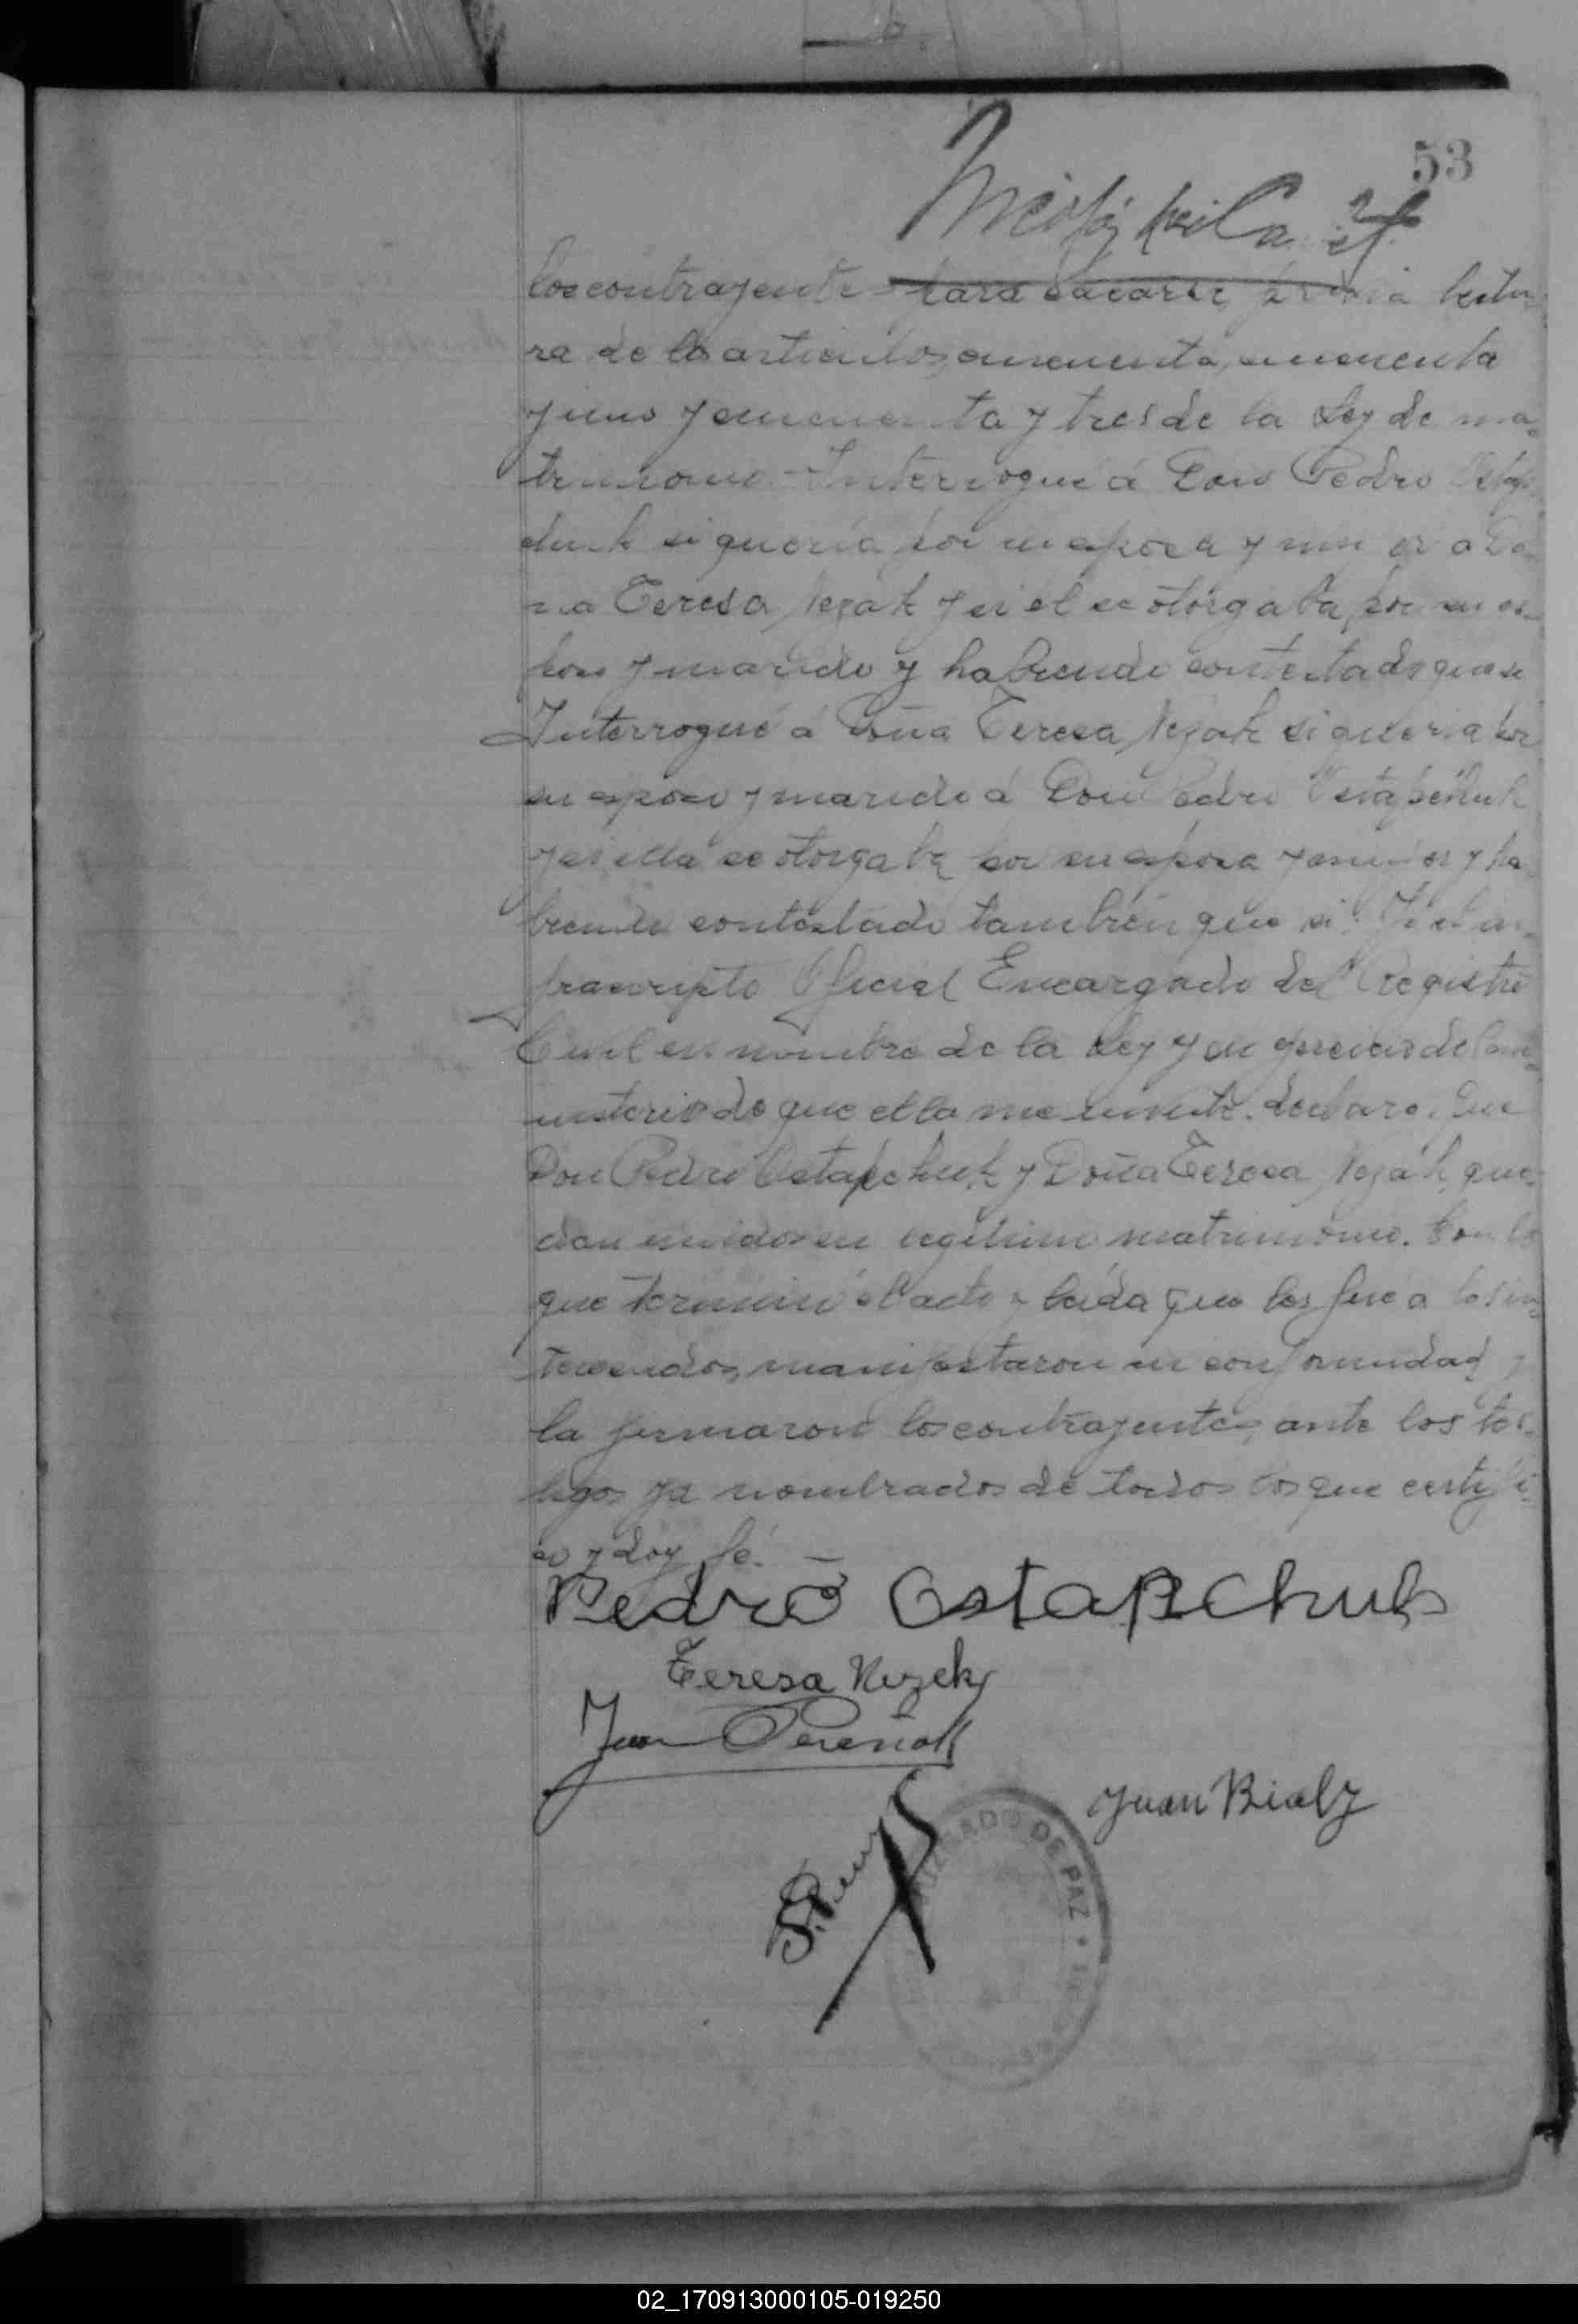 53
los contrayentes para casarse, previa lectu-
ra de los articulos cincuenta, cincuenta
y uno y cincuenta y tres de la Ley de ma-
trimonio. Interrogué á Don Pedro Ostap-
chuk si queria por su esposa y mujer a Do-
ña Teresa Nezak y si él se otorgaba por su es-
poso y marido y habiendo contestado que si
Interrogué á Doña Teresa Nezak si queria por
su esposo y marido á Don Pedro Ostapchuk
y si ella se otorgaba por su esposa y mujer y ha-
biendo contestado también que si. Yo el in-
frascripto Oficial Encargado del Registro
Civil en nombre de la Ley y en ejercicio del mi-
nisterio de que ella me inviste. declaro. Que
Don Pedro Ostapchuk y Doña Teresa Nezak que-
dan unidos en legitimo matrimonio. Con lo
que terminó el acto y leida que les fué a los in-
teresados, manifestaron su conformidad y
la firmaron los contrayentes, ante los tes-
tigos ya nombrados de todos los que certifi-
co y doy fé.
Pedro Ostapchuk
Teresa Nezek
Juan
Juan Bialy
JUZGADO DE PAZ
02_170913000105-019250